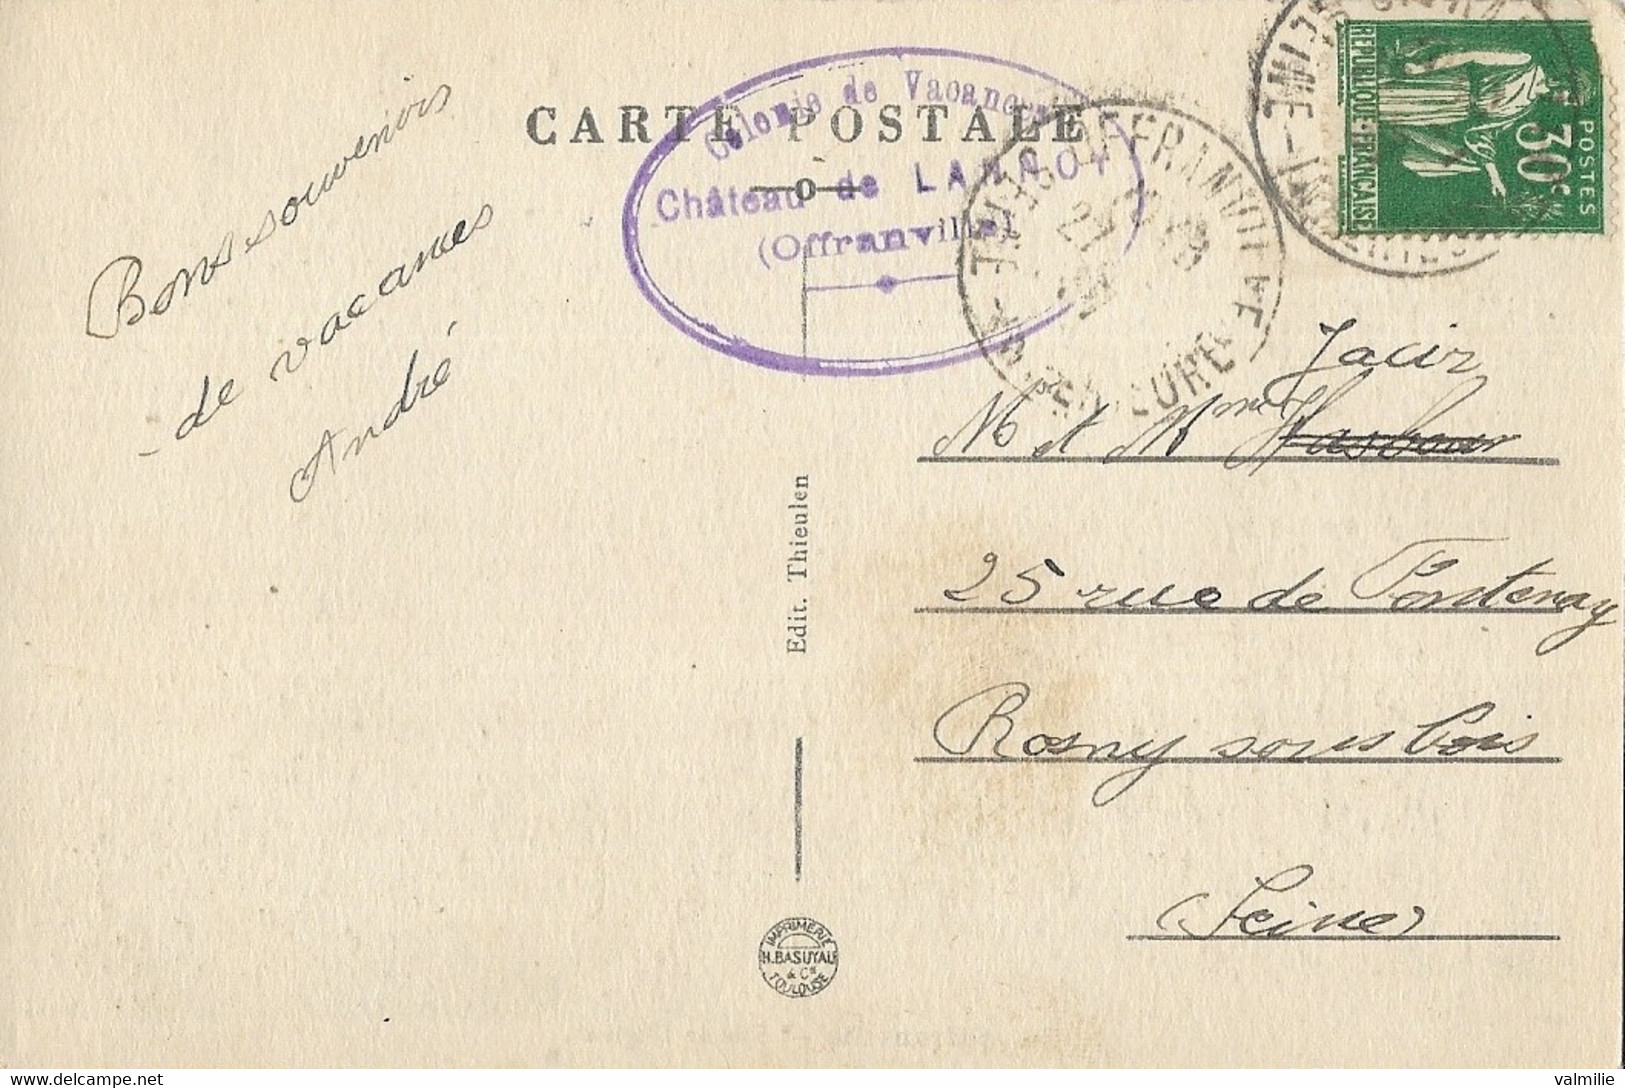 CARTE POSTALE
Colonie de Vacances
Château de
(Offranville)
OFFRANVILLE
SEINE
REPUBLIQUE FRANÇAISE
POSTES
30c
Bons souvenirs
de vacances
André
Jacir
M et Mme
25 rue de Fontenay
Rosny sous bois
(Seine)
Edit. Thieulen
IMPRIMERIE
H. BASUYAU
& Cie
TOULOUSE
valmilie